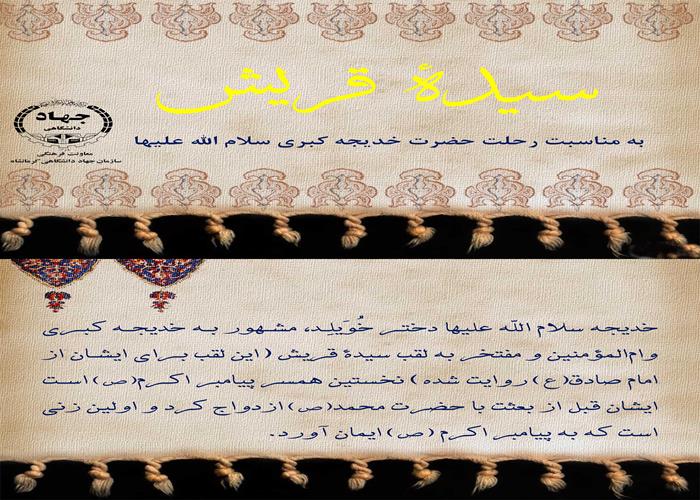 سیدهٔ قریش
به مناسبت رحلت حضرت خدیجه کبری سلام الله علیها
جهاد
دانشگاهی
معاونت فرهنگی
سازمان جهاد دانشگاهی کرمانشاه
خدیجه سلام الله علیها دختر خُوَیلِد، مشهور به خدیجه کبری
وام‌المؤمنین و مفتخر به لقب سیدهٔ قریش (این لقب برای ایشان از
امام صادق(ع) روایت شده) نخستین همسر پیامبر اکرم(ص) است
ایشان قبل از بعثت با حضرت محمد(ص) ازدواج کرد و اولین زنی
است که به پیامبر اکرم (ص) ایمان آورد.